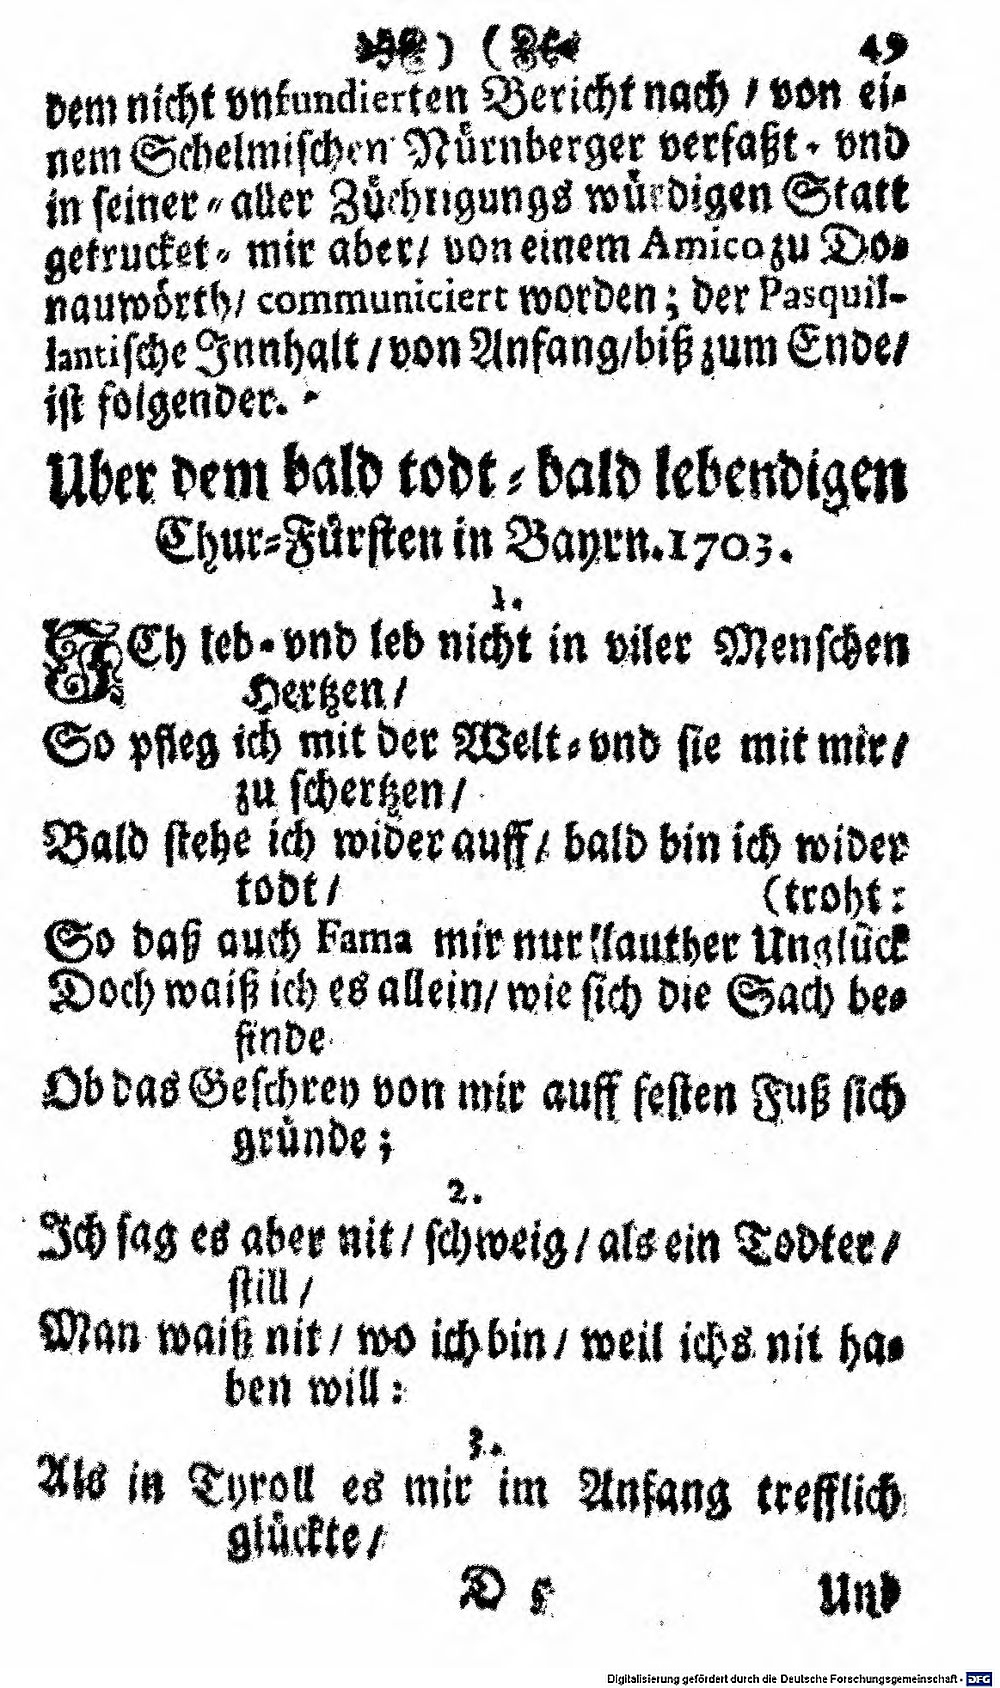 ) ( 49
dem nicht vnfundierten Bericht nach / von ei-
nem Schelmischen Nürnberger verfaßt- vnd
in seiner- aller Züchtigungs würdigen Statt
getrucket- mir aber/ von einem Amico zu Do-
nauwörth/ communiciert worden; der Pasquil-
lantische Innhalt / von Anfang/biß zum Ende/
ist folgender. -
Uber dem bald todt- bald lebendigen
Chur-Fürsten in Bayrn. 1703.
1.
ICh leb- vnd leb nicht in viler Menschen
Hertzen /
So pfleg ich mit der Welt- vnd sie mit mir/
zu schertzen /
Bald stehe ich wider auff / bald bin ich wider
todt / (troht:
So daß auch Fama mir nur lauther Unglück
Doch waiß ich es allein/ wie sich die Sach be-
finde
Ob das Geschrey von mir auff festen Fuß sich
gründe;
2.
Ich sag es aber nit / schweig / als ein Todter /
still /
Man waiß nit / wo ich bin / weil ichs nit ha-
ben will:
3.
Als in Tyroll es mir im Anfang trefflich
glückte /
D 5 Und
Digitalisierung gefördert durch die Deutsche Forschungsgemeinschaft - DFG